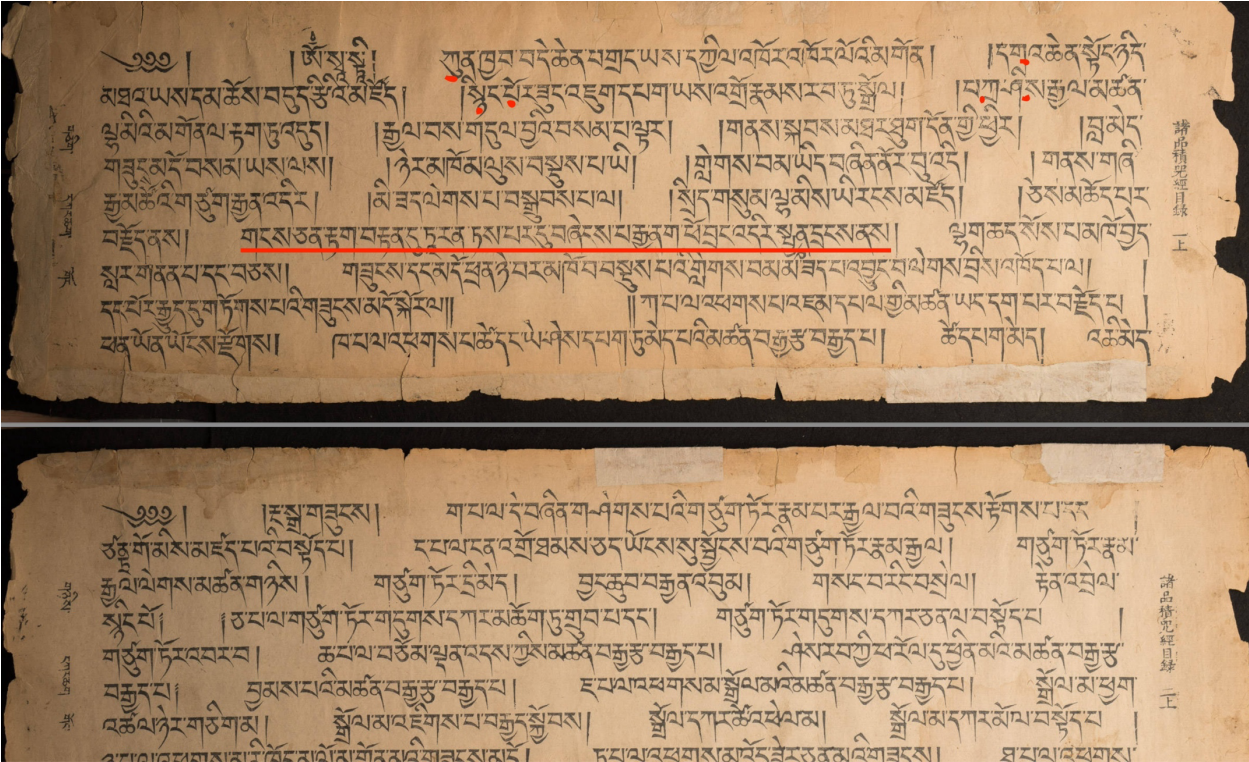 ༄༅༅། །ཨོཾ་སྭསྟི། ཀུན་ཁྱབ་བདེ་ཆེན་པ་གྲང་ཡས་དཀྱིལ་འཁོར་འཁོར་ལོའི་མགོན། །དགའ་ཆེན་སྟོང་ཉིད་
མཐའ་ཡས་དམ་ཆོས་བདུད་རྩིའི་མཛོད། །སྙིང་པོར་ཟུང་འཇུག་དཔག་ཡས་འགྲོ་རྣམས་རབ་ཏུ་སྒྲོལ། །པཀྲ་ཤིས་རྒྱལ་མཚན་
ལྷ་མིའི་མགོན་ལ་རྟག་ཏུ་འདུད། །རྒྱལ་བས་གདུལ་བྱའི་བསམ་པ་ལྟར། །གནས་སྐབས་མཐར་ཐུག་དོན་གྱི་ཕྱིར། །བླ་མེད་
གཟུངས་མདོ་བསམ་ཡས་ལས།། །ཉེར་མཁོ་མ་ལུས་བསྡུས་པ་ཡི། །གླེགས་བམ་ཡིད་བཞིན་ནོར་བུ་འདི། །གནས་གཞི་
རྒྱ་མཚོའི་གཙུག་རྒྱན་འདིར། །མི་ཟད་ལེགས་པ་བསྒྲུབས་པ་ལ། །སྲིད་གསུམ་ལྷ་མིས་ཡི་རངས་མཛོད། །ཅེས་མཆོད་པར་
བརྗོད་ནས། གངས་ཅན་རྟག་བརྟན་དུ་ཏཱ་ར་ནཱ་ཏས་པར་དུ་བཞེངས་པ་རྒྱ་ནག་ཕོ་བྲང་འདིར་སྤྱན་དྲངས་ནས། ལྷག་ཆད་སོས་པ་མཁོ་བྱེད་
སླར་གནན་པ་དང་བཅས།། གཟུངས་དང་མདོ་ཕྲན་ཉེ་བར་མཁོ་བ་བསྡུས་པའི་གླེགས་བམ་མི་ཟད་པ་འབྱུང་བ་ལེགས་བྲིས་འཁོད་པ་ལ།།
དང་པོར་རྒྱུད་དུ་གཏོགས་པའི་གཟུངས་མདོ་སྐོར་ལ།། །།ཀ་པ་ལ་འཕགས་པ་འཇམ་དཔལ་གྱི་མཚན་ཡང་དག་པར་བརྗོད་པ།
ཕན་ཡོན་ཡོངས་རྫོགས། ཁ་པ་ལ་འཕགས་པ་ཚེ་དང་ཡེ་ཤེས་དཔག་ཏུ་མེད་པའི་མཚན་བརྒྱ་རྩ་བརྒྱད་པ། ཚེ་དཔག་མེད། འཆི་མེད་
諸品積咒經目錄 一上
༄༅༅། །རྔ་སྒྲ་གཟུངས། ག་པ་ལ་དེ་བཞིན་གཤེགས་པའི་གཙུག་ཏོར་རྣམ་པར་རྒྱལ་བའི་གཟུངས་རྟོགས་པ་དང་
ཙནྡྲ་གོ་མིས་མཛད་པའི་བསྟོད་པ། ང་པ་ལ་ངན་འགྲོ་ཐམས་ཅད་ཡོངས་སུ་སྦྱོངས་བའི་གཙུག་ཏོར་རྣམ་རྒྱལ། གཙུག་ཏོར་རྣམ་
རྒྱལ་ལེགས་མཚན་གཉིས། གཙུག་ཏོར་དྲི་མེད། བྱང་ཆུབ་བརྒྱན་འབུམ། གསང་བ་རིང་བསྲེལ།། རྟེན་འབྲེལ་
སྙིང་པོ། ཅ་པ་ལ་གཙུག་ཏོར་གདུགས་དཀར་མཆོག་ཏུ་གྲུབ་པ་དང་། གཙུག་ཏོར་གདུགས་དཀར་ཅན་ལ་བསྟོད་པ།
གཙུག་ཏོར་འབར་བ། ཆ་པ་ལ་བཅོམ་ལྡན་འདས་ཀྱིས་མཚན་བརྒྱ་རྩ་བརྒྱད་པ།། ཤེར་བཀྱི་ཕ་རོལ་ཏུ་ཕྱིན་མའི་མཚན་བརྒྱ་རྩ་
བརྒྱད་པ། བྱམས་པའི་མཚན་བརྒྱ་རྩ་བརྒྱད་པ། ཇ་པ་ལ་འཕགས་མ་སྒྲོལ་མའི་མཚན་བརྒྱ་རྩ་བརྒྱད་པ། སྒྲོལ་མ་ཕྱག་
འཚལ་ཉེར་གཅིག་མ། སྒྲོལ་མ་འཇིགས་པ་བརྒྱད་སྐྱོབས། སྒྲོལ་དཀར་ཚེ་འཕེལ་མ། སྒྲོལ་མ་དཀར་མོ་ལ་བསྟོད་པ།
諸品積咒經目錄 二上